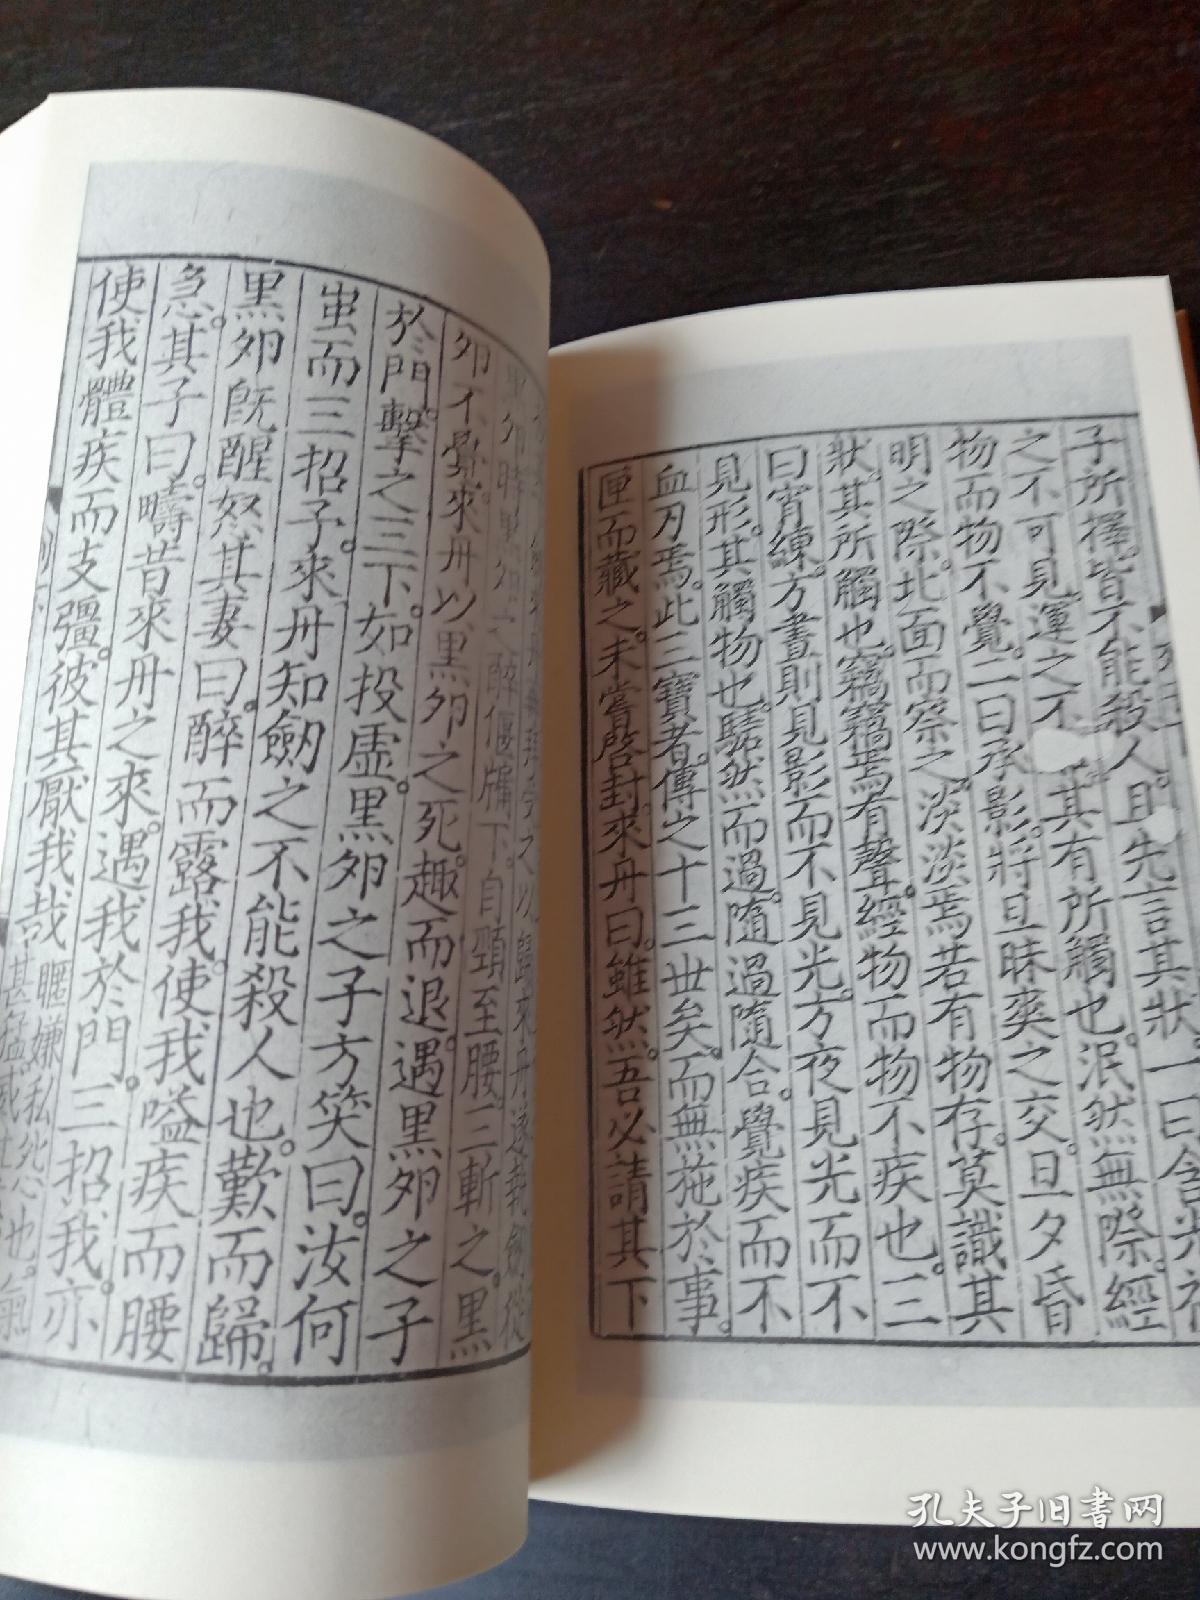 子所擇皆不能殺人且先言其狀一曰含光視
之不可見運之不其有所觸也泯然無際經
物而物不覺二曰承影將旦昧爽之交旦夕昏
明之際北面而察之淡淡焉若有物存莫識其
狀其所觸也竊竊焉有聲經物而物不疾也三
曰宵練方晝則見影而不見光方夜見光而不
見形其觸物也騞然而過隨過隨合覺疾而不
血刃焉此三寶者傳之十三世矣而無施於事
匣而藏之未嘗啓封來丹曰雖然吾必請其下
歸來丹遂執劒從
黑卵時黑卵之醉偃牖下自頸至腰三斬之黑
卵不覺來丹以黑卵之死趣而退遇黑卵之子
於門擊之三下如投虛黑卵之子方笑曰汝何
蚩而三招子來丹知劒之不能殺人也歎而歸
黑卵既醒怒其妻曰醉而露我使我嗌疾而腰
急其子曰疇昔來丹之來遇我於門三招我亦
使我體疾而支彊彼其厭我哉
孔夫子旧书网
www.kongfz.com